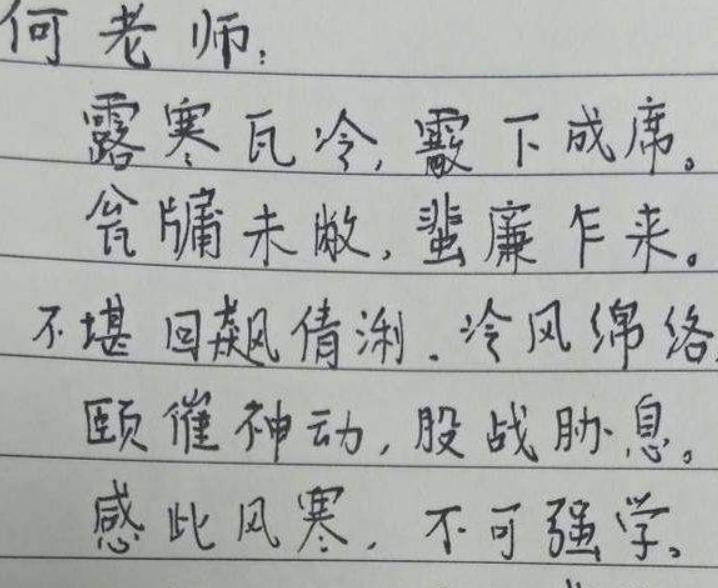 何老师:
露寒瓦冷,霰下成席。
瓮牖未敞,蜚廉乍来。
不堪回飙倩浰.冷风绵络.
颐催神动,股战胁息。
感此风寒,不可强学。